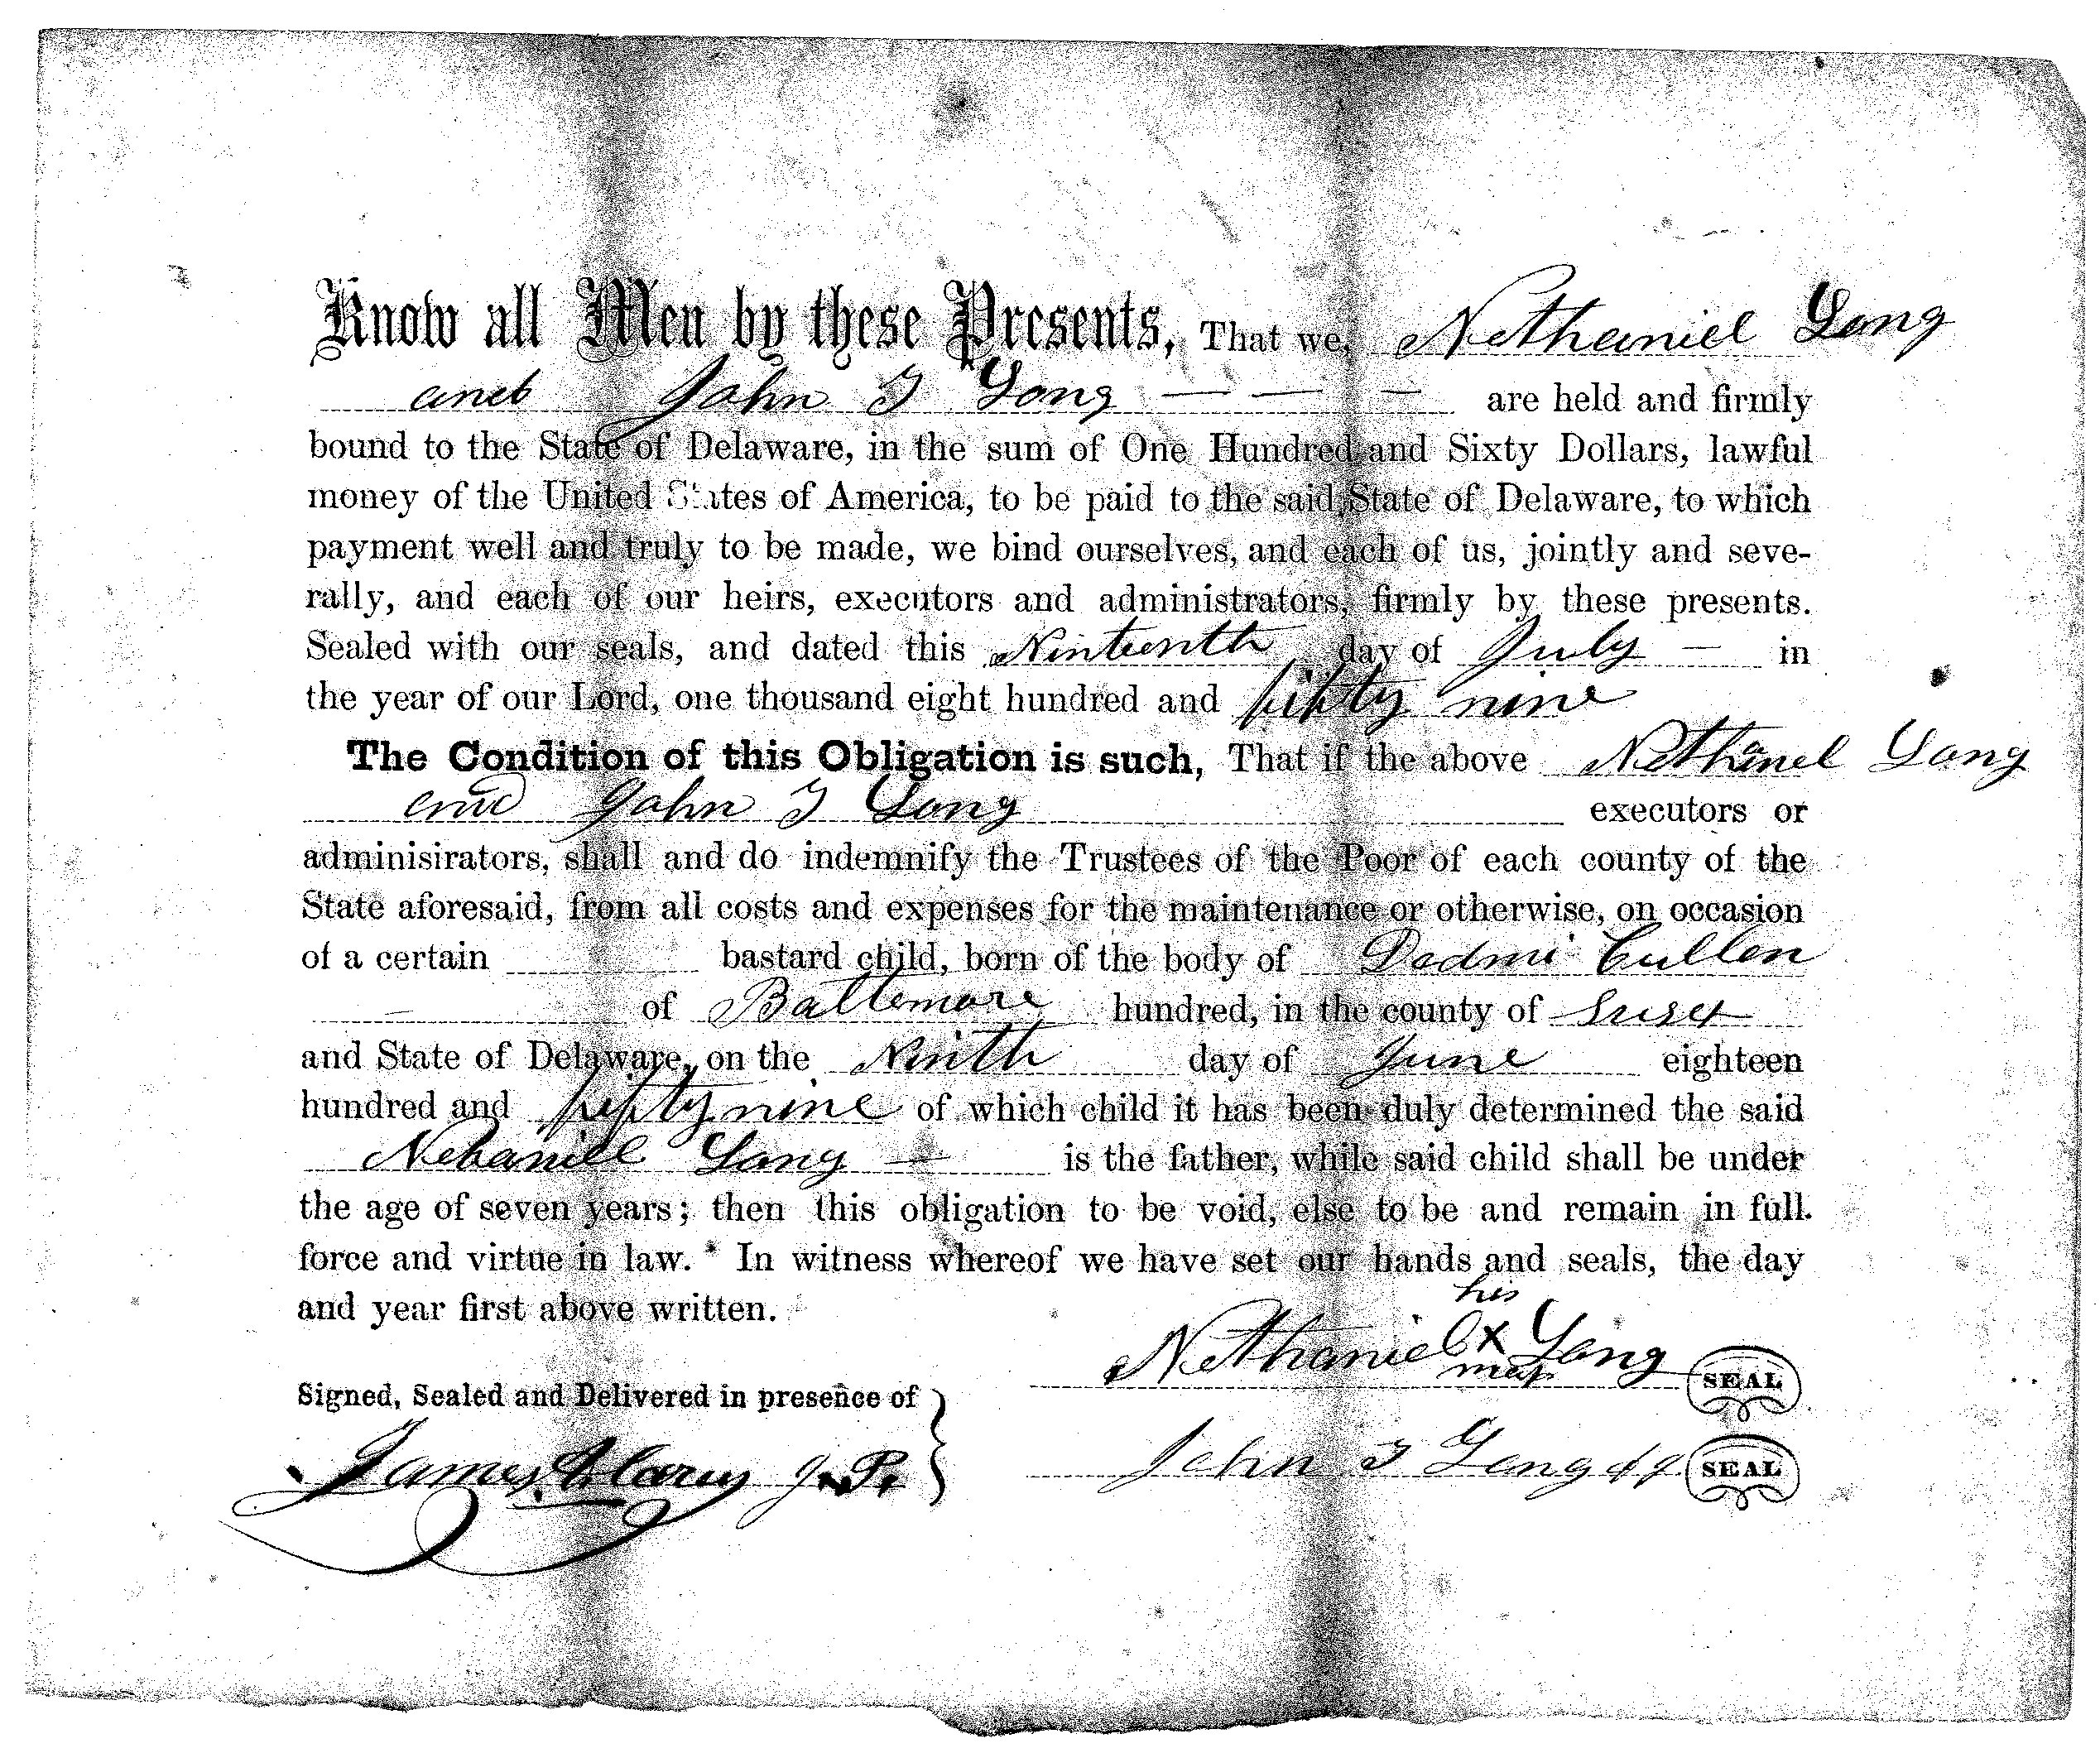 Know all Men by these Presents, That we, Nethaniel Long
and John T Long — — — are held and firmly
bound to the State of Delaware, in the sum of One Hundred and Sixty Dollars, lawful
money of the United States of America, to be paid to the said State of Delaware, to which
payment well and truly to be made, we bind ourselves, and each of us, jointly and seve-
rally, and each of our heirs, executors and administrators, firmly by these presents.
Sealed with our seals, and dated this Ninteenth day of July — in
the year of our Lord, one thousand eight hundred and fifty nine
The Condition of this Obligation is such, That if the above Nethaniel Long
and John T Long executors or
adminisirators, shall and do indemnify the Trustees of the Poor of each county of the
State aforesaid, from all costs and expenses for the maintenance or otherwise, on occasion
of a certain bastard child, born of the body of Cullen
— of Baltemore hundred, in the county of Susex
and State of Delaware, on the Ninth day of June eighteen
hundred and fifty nine of which child it has been duly determined the said
Nehaniell Long — is the father, while said child shall be under
the age of seven years; then this obligation to be void, else to be and remain in full.
force and virtue in law. * In witness whereof we have set our hands and seals, the day
and year first above written.
his
Nethaniel X Long SEAL
Signed, Sealed and Delivered in presence of
James J. P.
John T Long SEAL